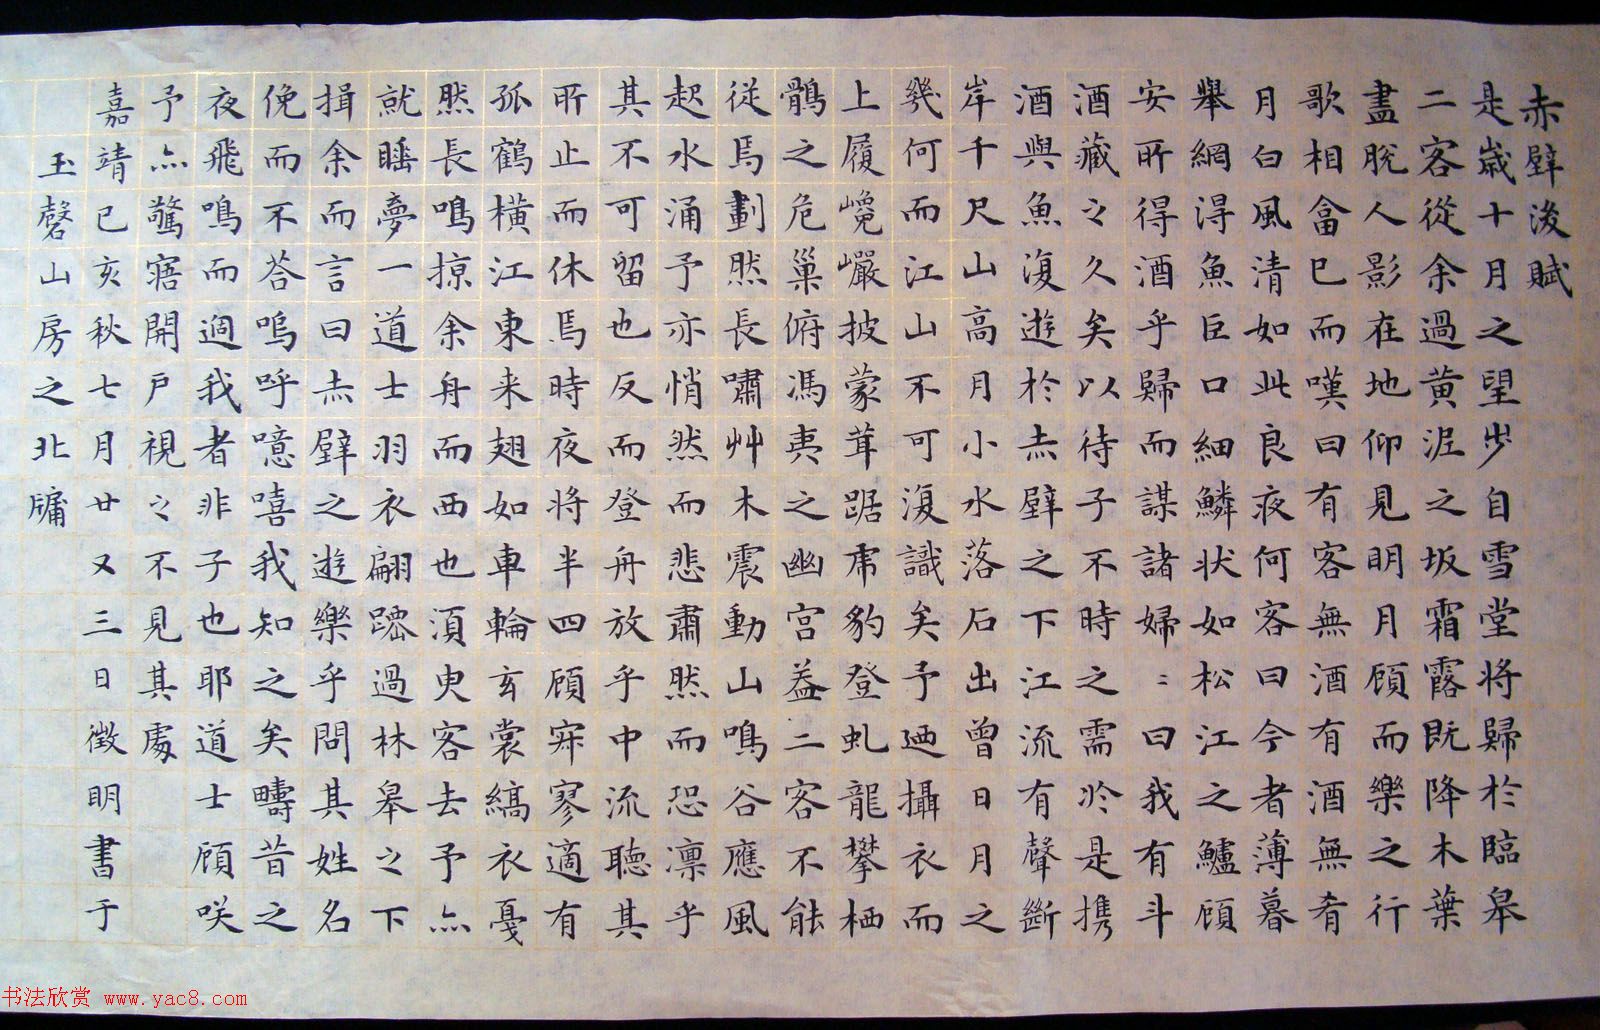 赤壁後賦
是歲十月之望步自雪堂将歸於臨皋
二客從余過黄泥之坂霜露既降木葉
盡脫人影在地仰見明月顧而樂之行
歌相畣已而嘆曰有客無酒有酒無肴
月白風清如此良夜何客曰今者薄暮
舉網得魚巨口細鱗状如松江之鱸顧
安所得酒乎歸而謀諸婦〻曰我有斗
酒藏之久矣以待子不時之需於是携
酒與魚復遊於赤壁之下江流有聲斷
岸千尺山高月小水落石出曾日月之
幾何而江山不可復識矣予廼攝衣而
上履巉巖披蒙茸踞虎豹登虬龍攀栖
鶻之危巢俯馮夷之幽宫葢二客不能
從焉劃然長嘯艸木震動山鳴谷應風
起水涌予亦悄然而悲肅然而恐凛乎
其不可留也反而登舟放乎中流聽其
所止而休焉時夜将半四顧寂寥適有
孤鶴横江東来翅如車輪玄裳縞衣戛
然長鳴掠余舟而西也湏臾客去予亦
就睡夢一道士羽衣翩躚過林皋之下
揖余而言曰赤壁之遊樂乎問其姓名
俛而不荅嗚呼噫嘻我知之矣疇昔之
夜飛鳴而過我者非子也耶道士顧咲
予亦驚寤開戸視之不見其處
嘉靖己亥秋七月廿又三日徵明書于
玉磬山房之北牖
书法欣赏 www.yac8.com